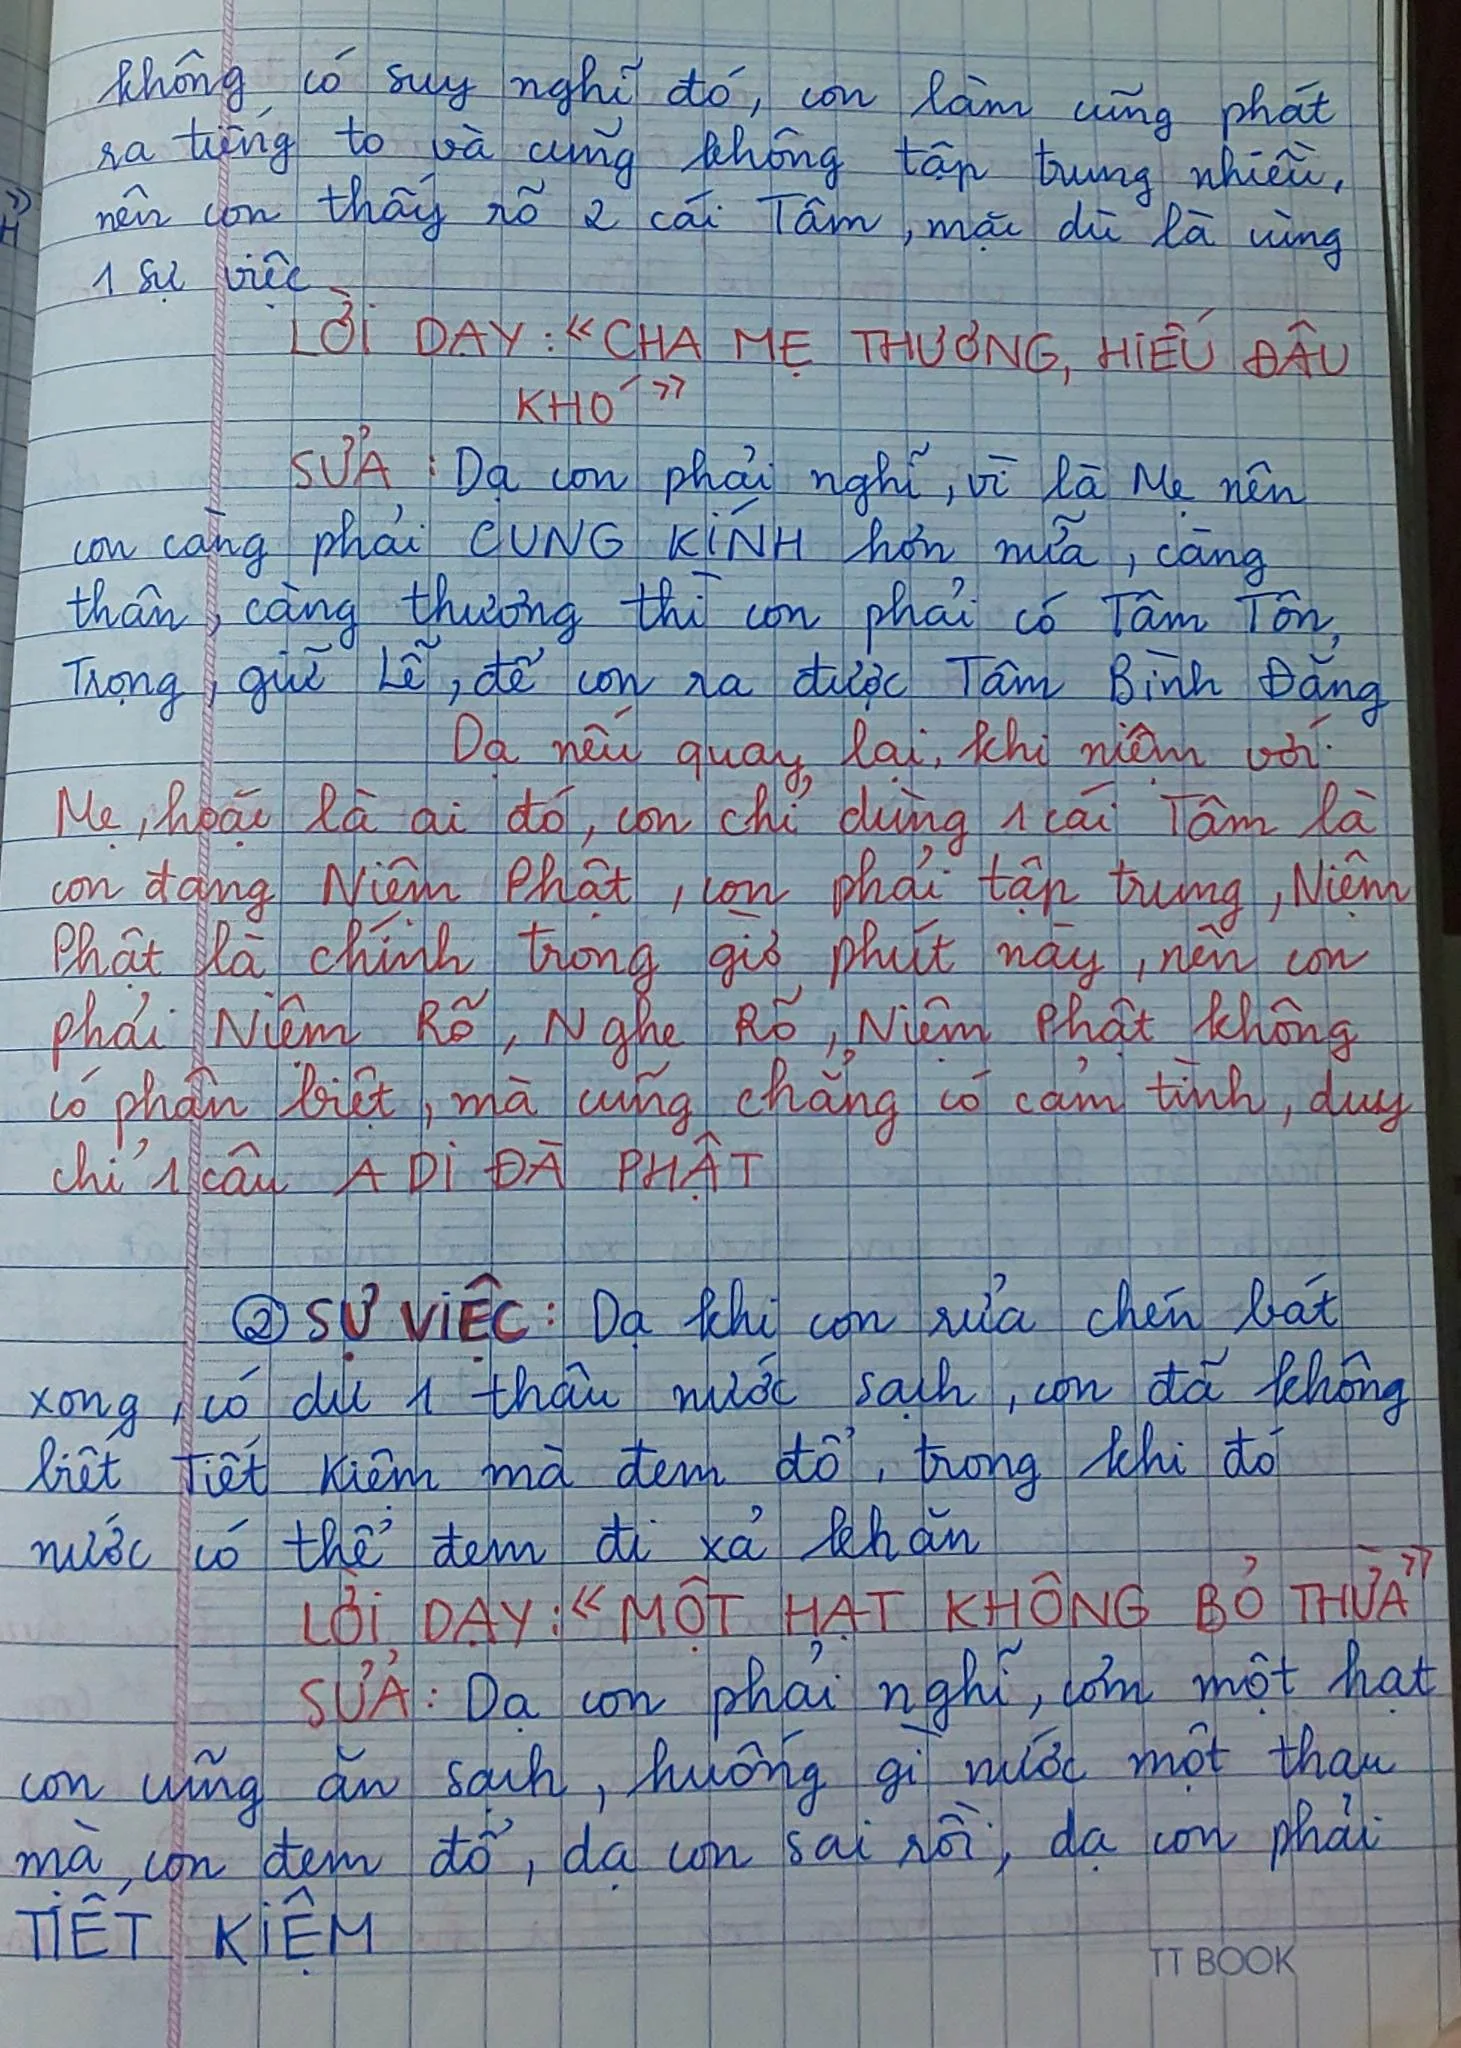 không có suy nghĩ đó, con làm cũng phát
ra tiếng to và cũng không tập trung nhiều,
nên con thấy rõ 2 cái Tâm, mặc dù là cùng
1 sự việc
LỜI DẠY: "CHA MẸ THƯƠNG, HIẾU ĐÂU
KHÓ"
SỬA: Dạ con phải nghĩ, vì là Mẹ nên
con càng phải CUNG KÍNH hơn nữa, càng
thân, càng thương thì con phải có Tâm Tôn
Trọng, giữ Lễ, để con ra được Tâm Bình Đẳng
Dạ nếu quay lại, khi niệm với
Mẹ, hoặc là ai đó, con chỉ dùng 1 cái Tâm là
con đang Niệm Phật, con phải tập trung, Niệm
Phật là chính trong giờ phút này, nên con
phải Niệm Rõ, Nghe Rõ, Niệm Phật không
có phân biệt, mà cũng chẳng có cảm tình, duy
chỉ 1 câu A DI ĐÀ PHẬT
② SỰ VIỆC: Dạ khi con rửa chén bát
xong, có dư 1 thau nước sạch, con đã không
biết Tiết Kiệm mà đem đổ, trong khi đó
nước có thể đem đi xả khăn
LỜI DẠY: "MỘT HẠT KHÔNG BỎ THỪA"
SỬA: Dạ con phải nghĩ, cơm một hạt
con cũng ăn sạch, huống gì nước một thau
mà con đem đổ, dạ con sai rồi, dạ con phải
TIẾT KIỆM
TT BOOK